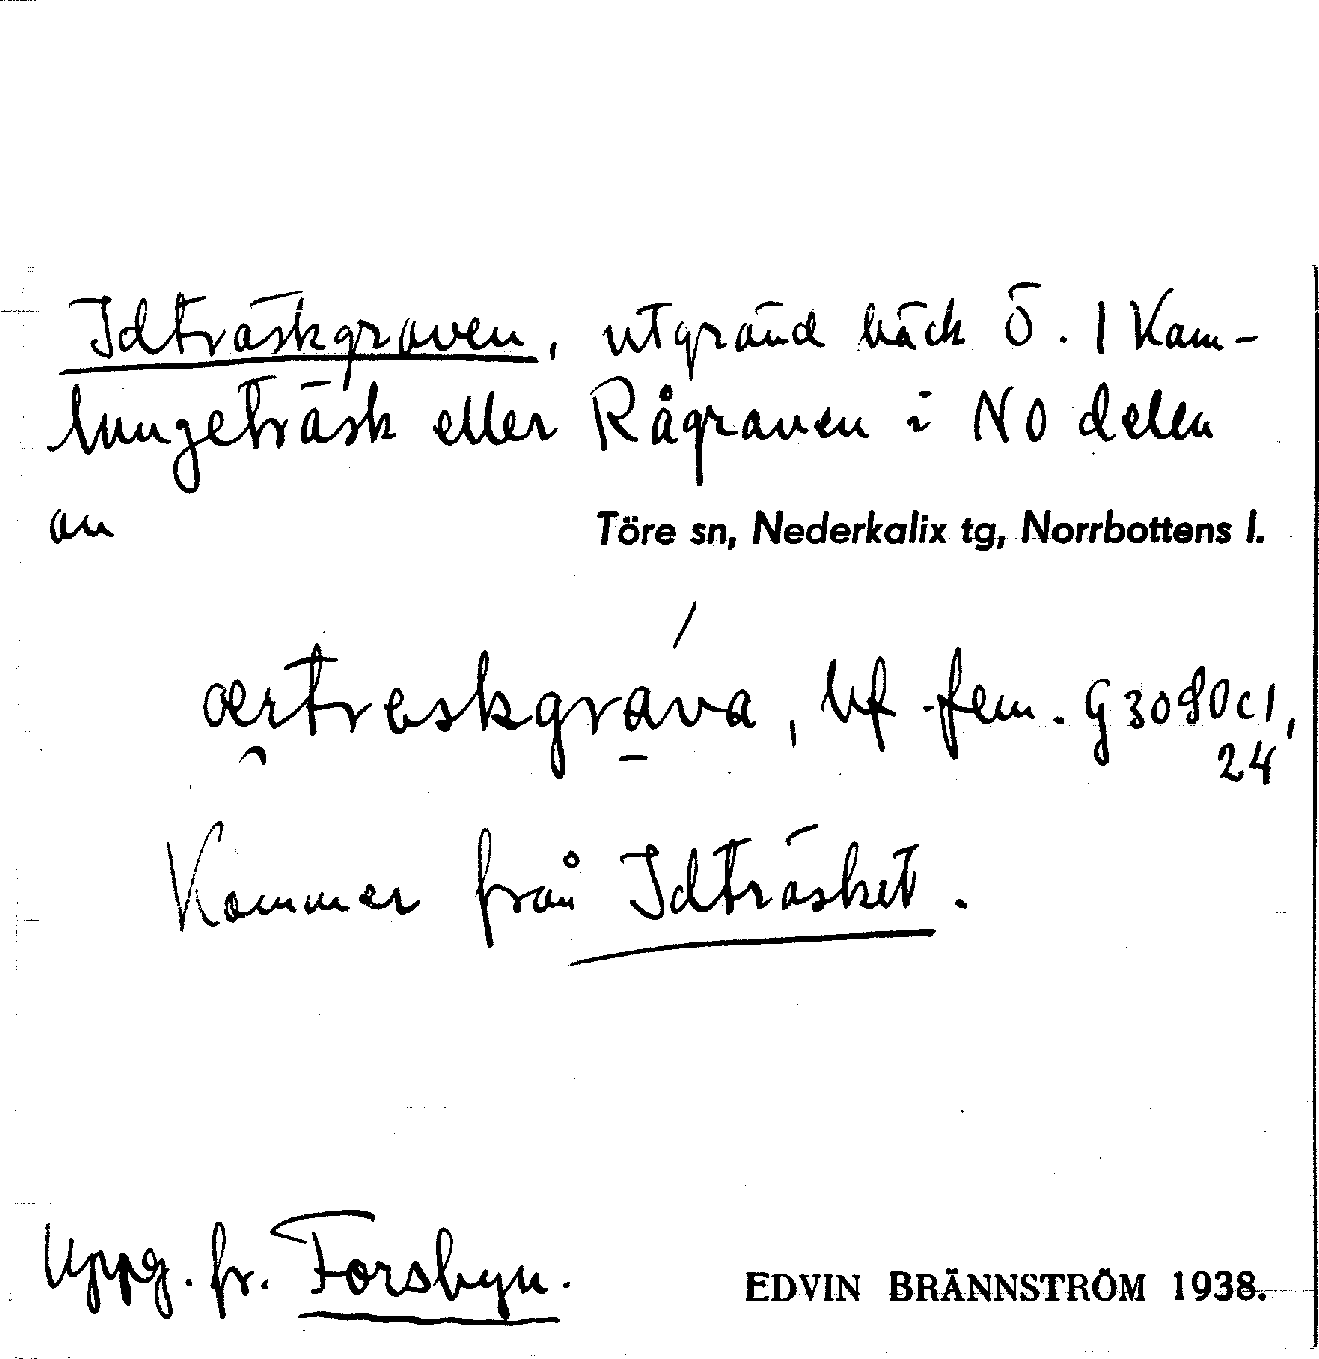 Idträskgraven, utgrävd bäck Ö. I Kam-
lungeträsk eller Rågraven i NO delen
av
Töre sn, Nederkalix tg, Norrbottens l.
ærtreskgrava, bf. fem. G 3080 c1,
24
Kommer från Idträsket.
Uppg. fr. Forsbyn.
EDVIN BRÄNNSTRÖM 1938.